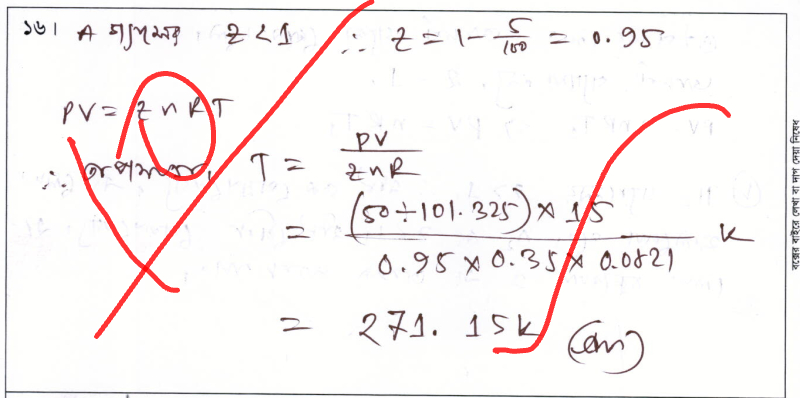 ১৬। A গ্যাসের Z < 1 ∴ Z = 1 - 5/100 = 0.95
PV = Z n R T
∴ তাপমাত্রা, T = PV / ZnR
= (50 ÷ 101.325) × 15 / 0.95 × 0.35 × 0.0821 K
= 271.15 K (Ans)
বক্সের বাইরে লেখা বা দাগ দেয়া নিষেধ